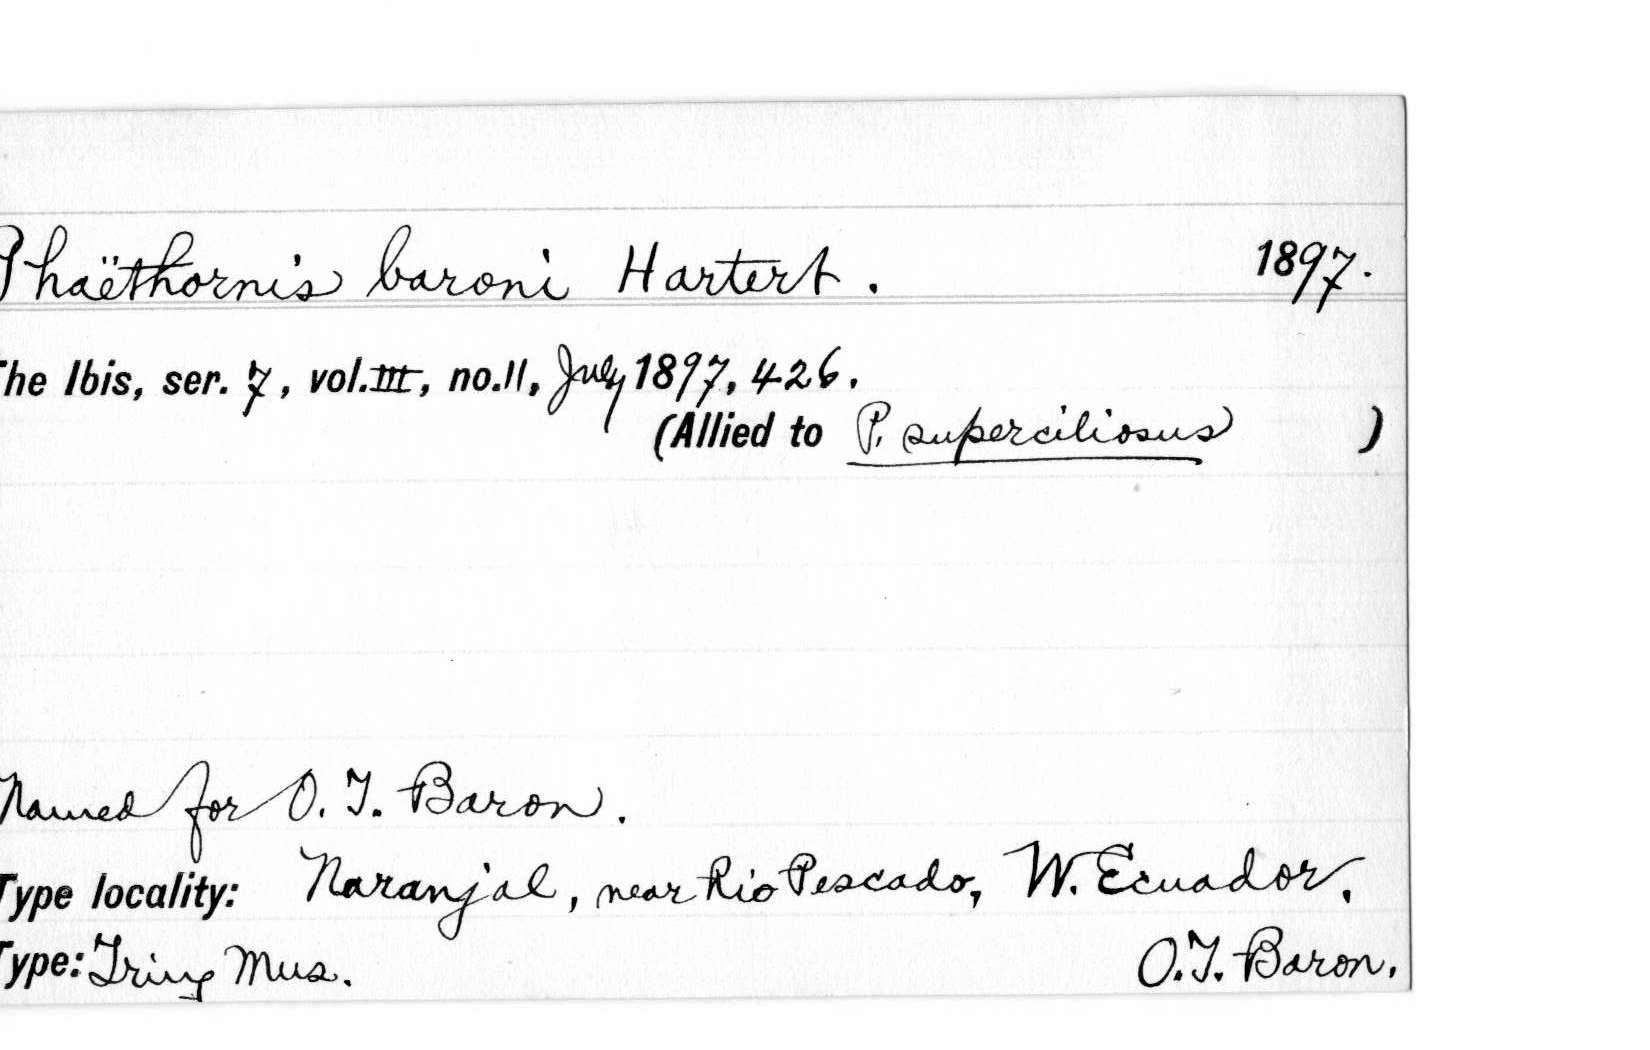 Phaëthornis baroni Hartert. 1897.
The Ibis, ser. 7, vol. III, no. 11, July 1897, 426.
(Allied to P. superciliosus )
Named for O. T. Baron.
Type locality: Naranjal, near Rio Pescado, W. Ecuador.
Type: Tring Mus. O.T. Baron.